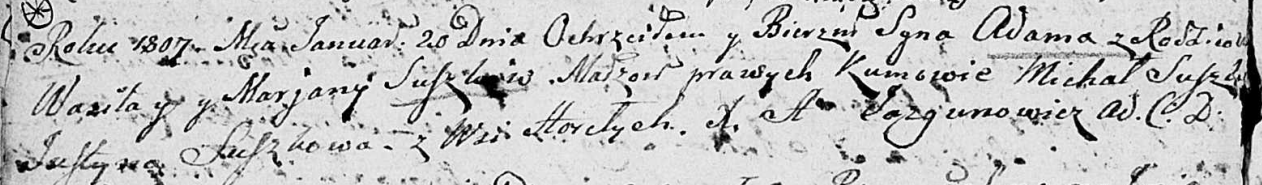 Roku 1807. Mca Januar: 20 Dnia Ochrzciłem y Bierzm Syna Adama z Rodziców
Wasila y y Marjany Suszków Małżon prawych Kumowie Michał Suszko
Justyna Suszkowa z Wsi Horełych. X. A Łazgunowicz Ad. C. D.